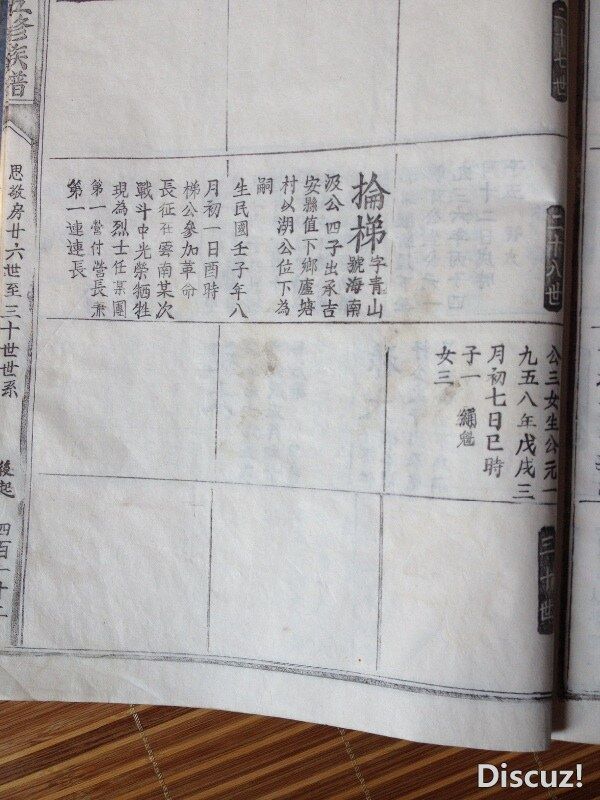 二十七世
二十八世
掄梯字青山
號海南
汲公四子出承吉
安縣值下鄉廬塘
村以湖公位下為
嗣
生民國壬子年八
月初一日酉時
梯公參加革命
長征在雲南某次
戰斗中光榮牺牲
現為烈士任某團
第一营付营長兼
第一連連長
公三女生公元一
九五八年戊戌三
月初七日巳時
子一 繩魁
女三
三十世
修族譜
思敬房廿六世至三十世世系
後起
四百一十二
Discuz!